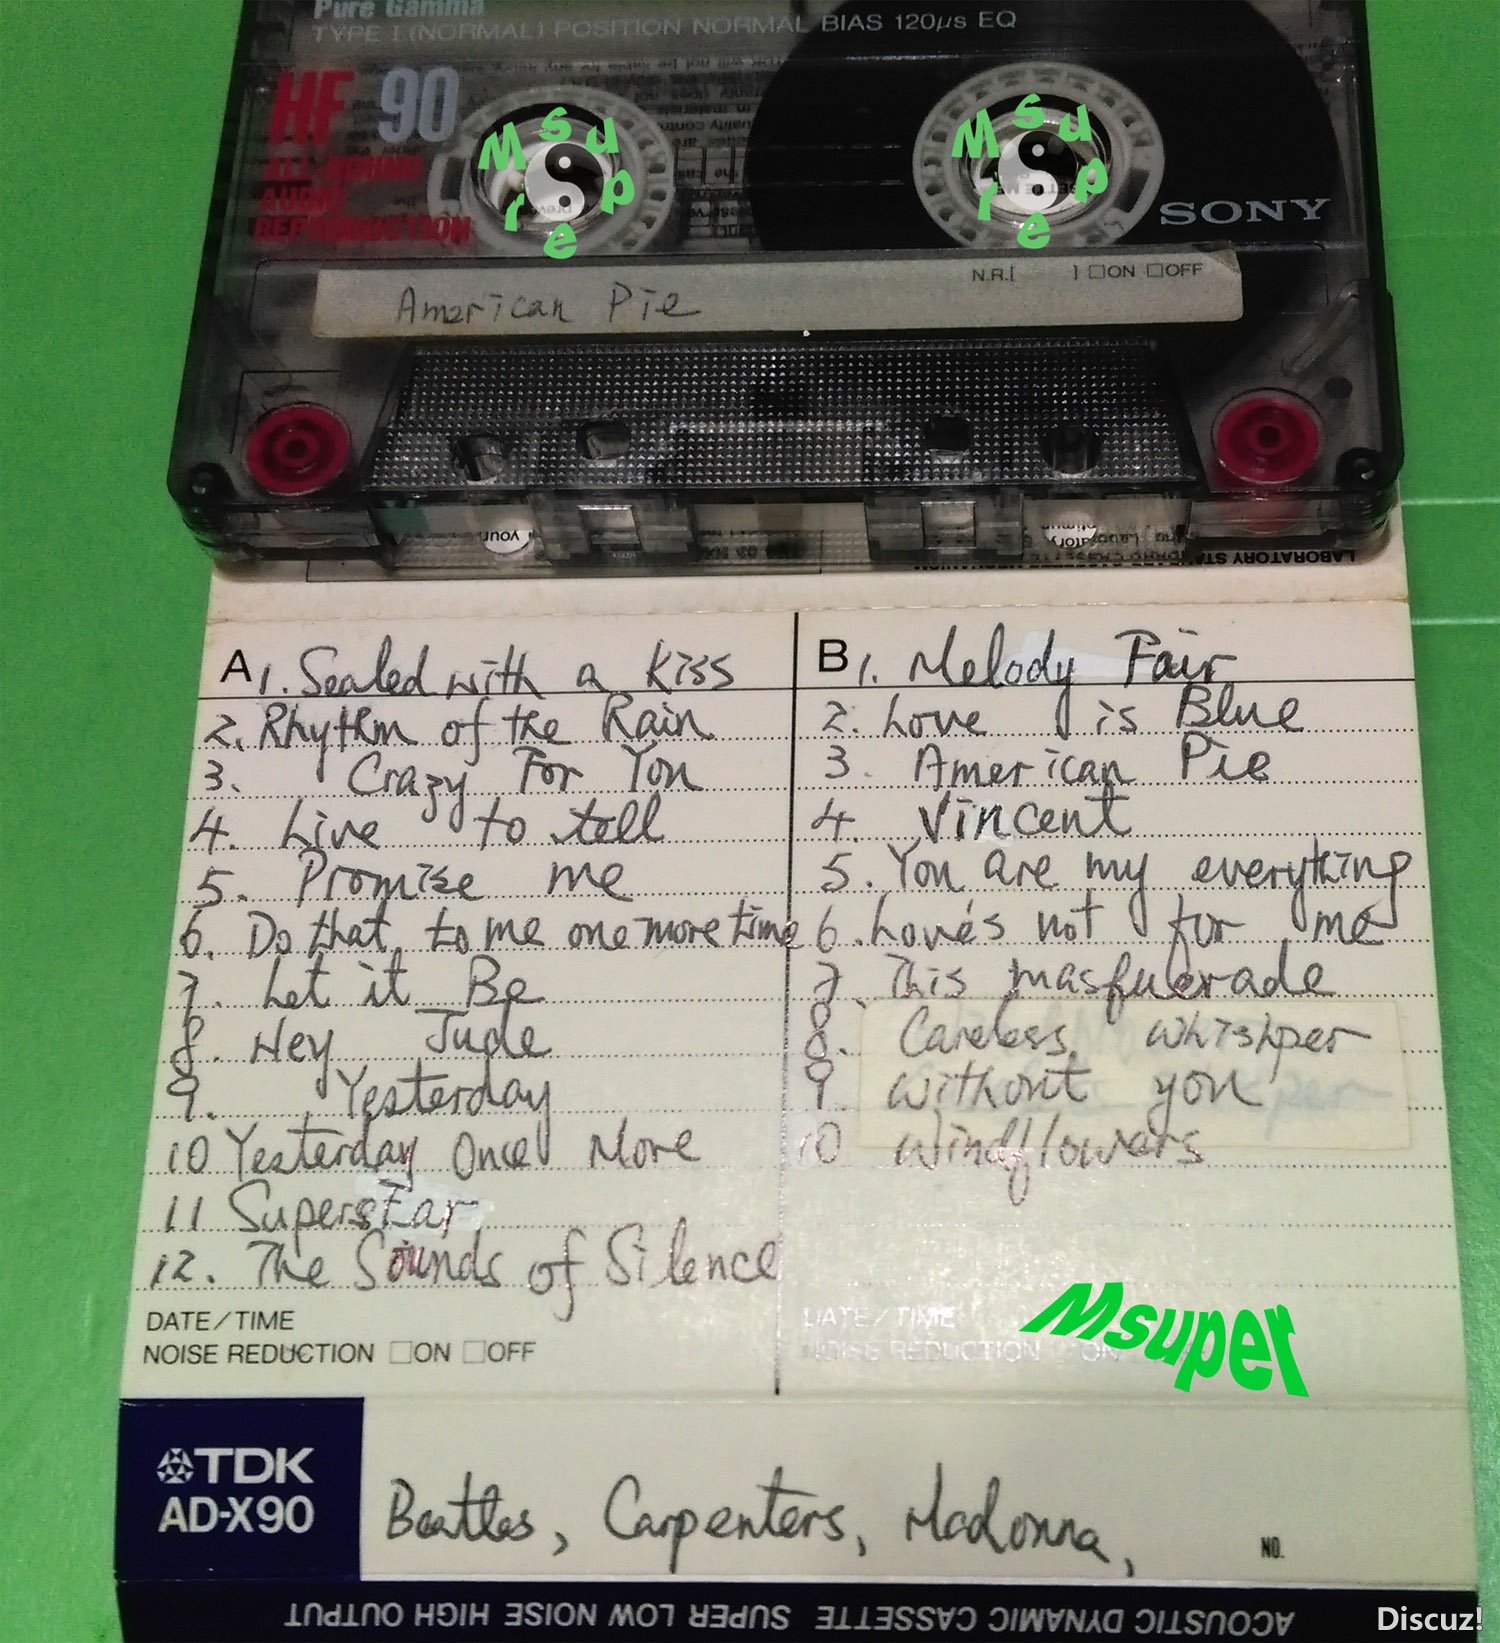 Pure Gamma
TYPE I (NORMAL) POSITION NORMAL BIAS 120µs EQ
HF 90
ALL ROUND
AUDIO
REPRODUCTION
Msuper
Msuper
SONY
N.R.[ ] □ON □OFF
American Pie
your
LABORATORY
A 1. Sealed with a kiss
2. Rhythm of the Rain
3. Crazy For You
4. Live to tell
5. Promise me
6. Do that to me one more time
7. Let it Be
8. Hey Jude
9. Yesterday
10 Yesterday Once More
11 Superstar
12. The Sounds of Silence
DATE/TIME
NOISE REDUCTION □ON □OFF
B 1. Melody Fair
2. Love is Blue
3. American Pie
4. Vincent
5. You are my everything
6. Love's not for me
7. This masquerade
8. Careless whishper
9. without you
10 windflowers
DATE/TIME
NOISE REDUCTION □ON
Msuper
TDK
AD-X90
Beatles, Carpenters, Madonna,
NO.
ACOUSTIC DYNAMIC CASSETTE SUPER LOW NOISE HIGH OUTPUT
Discuz!